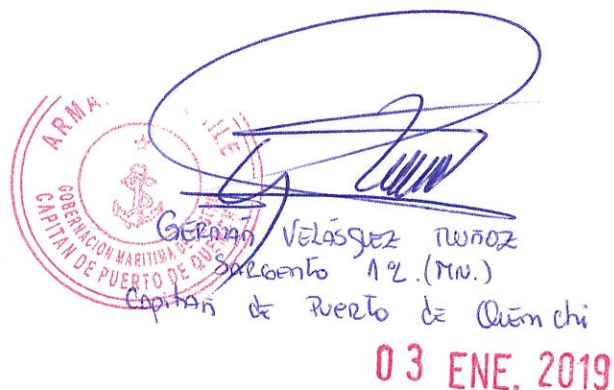 ARMA ILE
GOBERNACIÓN MARITIMA DE
CAPITAN DE PUERTO DE QUEMCHI
GERMÁN VELÁSQUEZ MUÑOZ
SARGENTO 1º. (MN.)
Capitán de Puerto de Quemchi
03 ENE. 2019